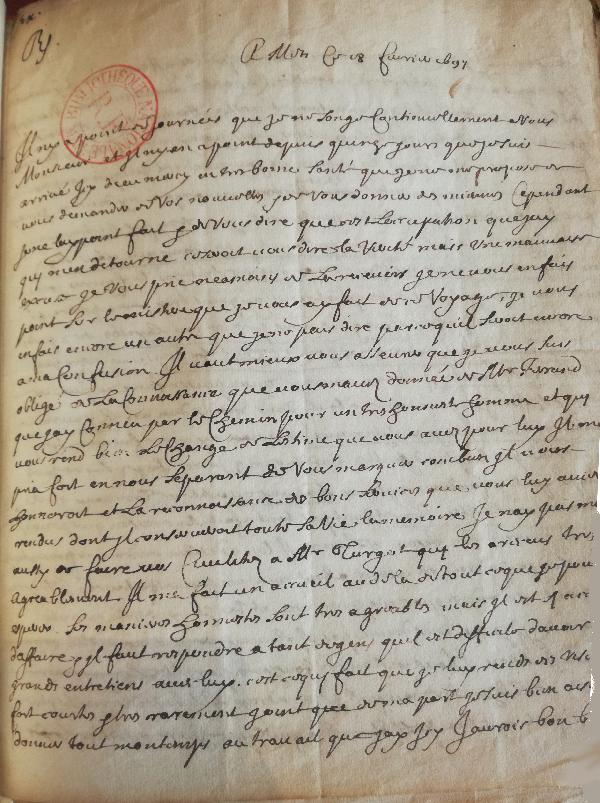 A Mets Ce 18 fevrier 1697
BIBLIOTHEQUE
Il ny a point de journées que je ne songe Continuellement a Vous
Monsieur et il ny en a point depuis quinze jours que je suis
arrivé Icy dieu mercy en tres bonne santé que je ne me propose de
vous demander de vos nouvelles et de vous donner des miennes Cependant
je ne lay point fait
de vous dire que cest Loccupation que jay
qui men detourne ce seroit vous dire la Verité mais Une mauvaise
excuse je vous prie neanmoins de la recevoir je ne vous en fais
point sur que je vous ay fait de ce Voyage, je vous
en fais encore un autre que je ne puis dire parcequil seroit encore
a ma Confusion. Il vaut mieux vous asseurer que je vous suis
obligé de La Connoissance que vous mavez donnée de Mr Ferrand
que jay Connu par le Chemin pour un tres honneste homme et qui
vous rend bien Le Change de Lestime que vous avez pour luy Il me
pria fort en nous separant de vous marquer combien il vous
honnoroit et La reconnoissance des bons offices que vous luy aviez
rendus dont il conserveroit toute sa Vie la memoire. Je nay pas
aussy de faire vos Civilitez a Mr Turgot qui les a receues tres
agreablement Il ma fait un accueil au dela de tout ce que je pou
esperer. Ses manieres honnestes sont tres agreables mais il est
daffaire et il faut respondre a tant de gens quil est difficile davoir
grands entretiens avec luy. cest ce qui fait que je luy rends des
fort courtes et tres rarement joint que de ma part je suis bien
donner tout mon temps au travail que jay Icy Jaurois bien